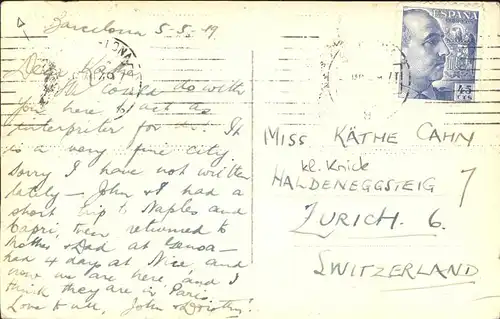 Barcelona 5-5-49
Dear Käthe
We could do with
you here to act as
interpreter for us. It
is a very fine city
Sorry I have not written
lately — John & I had a
short trip to Naples and
Capri, then returned to
Mother & Dad at Genoa —
had 4 days at Nice and
now we are here, and I
think they are in Paris.
Love to all, John & Dorothy.
ESPAÑA
45
CTS
MISS KÄTHE CAHN
HALDENEGGSTEIG 7
ZURICH. 6.
SWITZERLAND